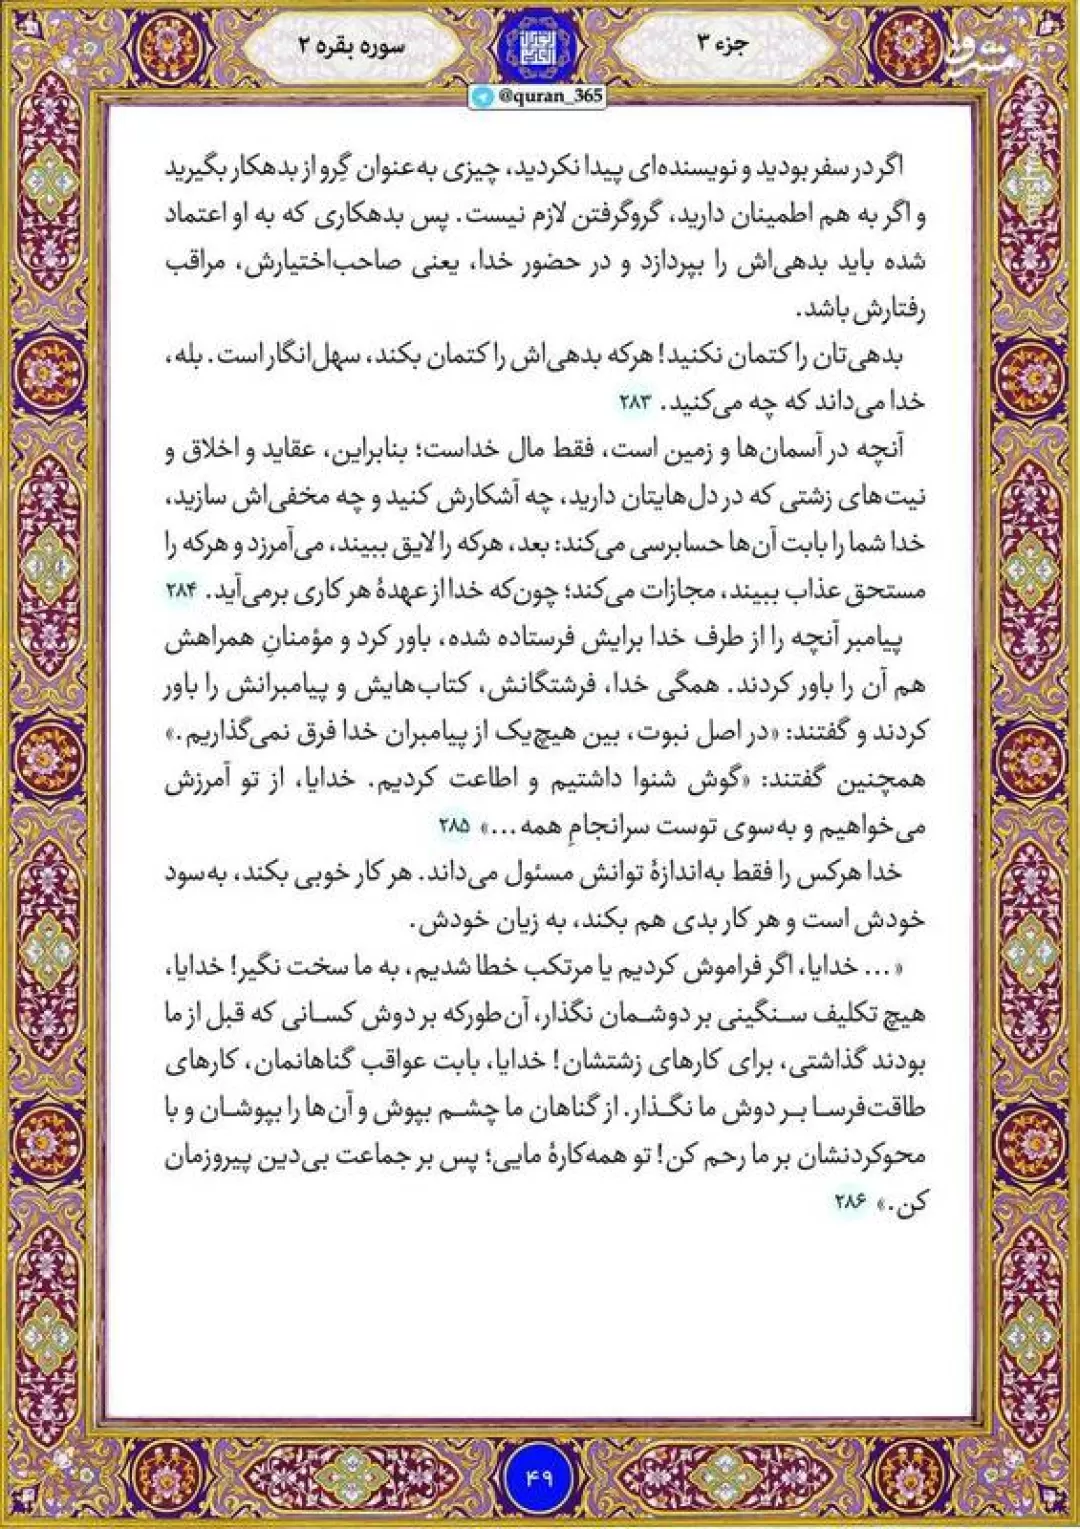 جزء ۳
سوره بقره ۲
@quran_365
مشرق
اگر در سفر بودید و نویسنده‌ای پیدا نکردید، چیزی به‌عنوان گِرو از بدهکار بگیرید
و اگر به هم اطمینان دارید، گروگرفتن لازم نیست. پس بدهکاری که به او اعتماد
شده باید بدهی‌اش را بپردازد و در حضور خدا، یعنی صاحب‌اختیارش، مراقب
رفتارش باشد.
بدهی‌تان را کتمان نکنید! هرکه بدهی‌اش را کتمان بکند، سهل‌انگار است. بله،
خدا می‌داند که چه می‌کنید. ۲۸۳
آنچه در آسمان‌ها و زمین است، فقط مال خداست؛ بنابراین، عقاید و اخلاق و
نیت‌های زشتی که در دل‌هایتان دارید، چه آشکارش کنید و چه مخفی‌اش سازید،
خدا شما را بابت آن‌ها حسابرسی می‌کند: بعد، هرکه را لایق ببیند، می‌آمرزد و هرکه را
مستحق عذاب ببیند، مجازات می‌کند؛ چون‌که خدا از عهدهٔ هر کاری برمی‌آید. ۲۸۴
پیامبر آنچه را از طرف خدا برایش فرستاده شده، باور کرد و مؤمنانِ همراهش
هم آن را باور کردند. همگی خدا، فرشتگانش، کتاب‌هایش و پیامبرانش را باور
کردند و گفتند: «در اصل نبوت، بین هیچ‌یک از پیامبران خدا فرق نمی‌گذاریم.»
همچنین گفتند: «گوش شنوا داشتیم و اطاعت کردیم. خدایا، از تو آمرزش
می‌خواهیم و به‌سوی توست سرانجامِ همه...» ۲۸۵
خدا هرکس را فقط به‌اندازهٔ توانش مسئول می‌داند. هر کار خوبی بکند، به‌سود
خودش است و هر کار بدی هم بکند، به زیان خودش.
«... خدایا، اگر فراموش کردیم یا مرتکب خطا شدیم، به ما سخت نگیر! خدایا،
هیچ تکلیف سنگینی بر دوشمان نگذار، آن‌طورکه بر دوش کسانی که قبل از ما
بودند گذاشتی، برای کارهای زشتشان! خدایا، بابت عواقب گناهانمان، کارهای
طاقت‌فرسا بر دوش ما نگذار. از گناهان ما چشم بپوش و آن‌ها را بپوشان و با
محوکردنشان بر ما رحم کن! تو همه‌کارهٔ مایی؛ پس بر جماعت بی‌دین پیروزمان
کن.» ۲۸۶
۴۹